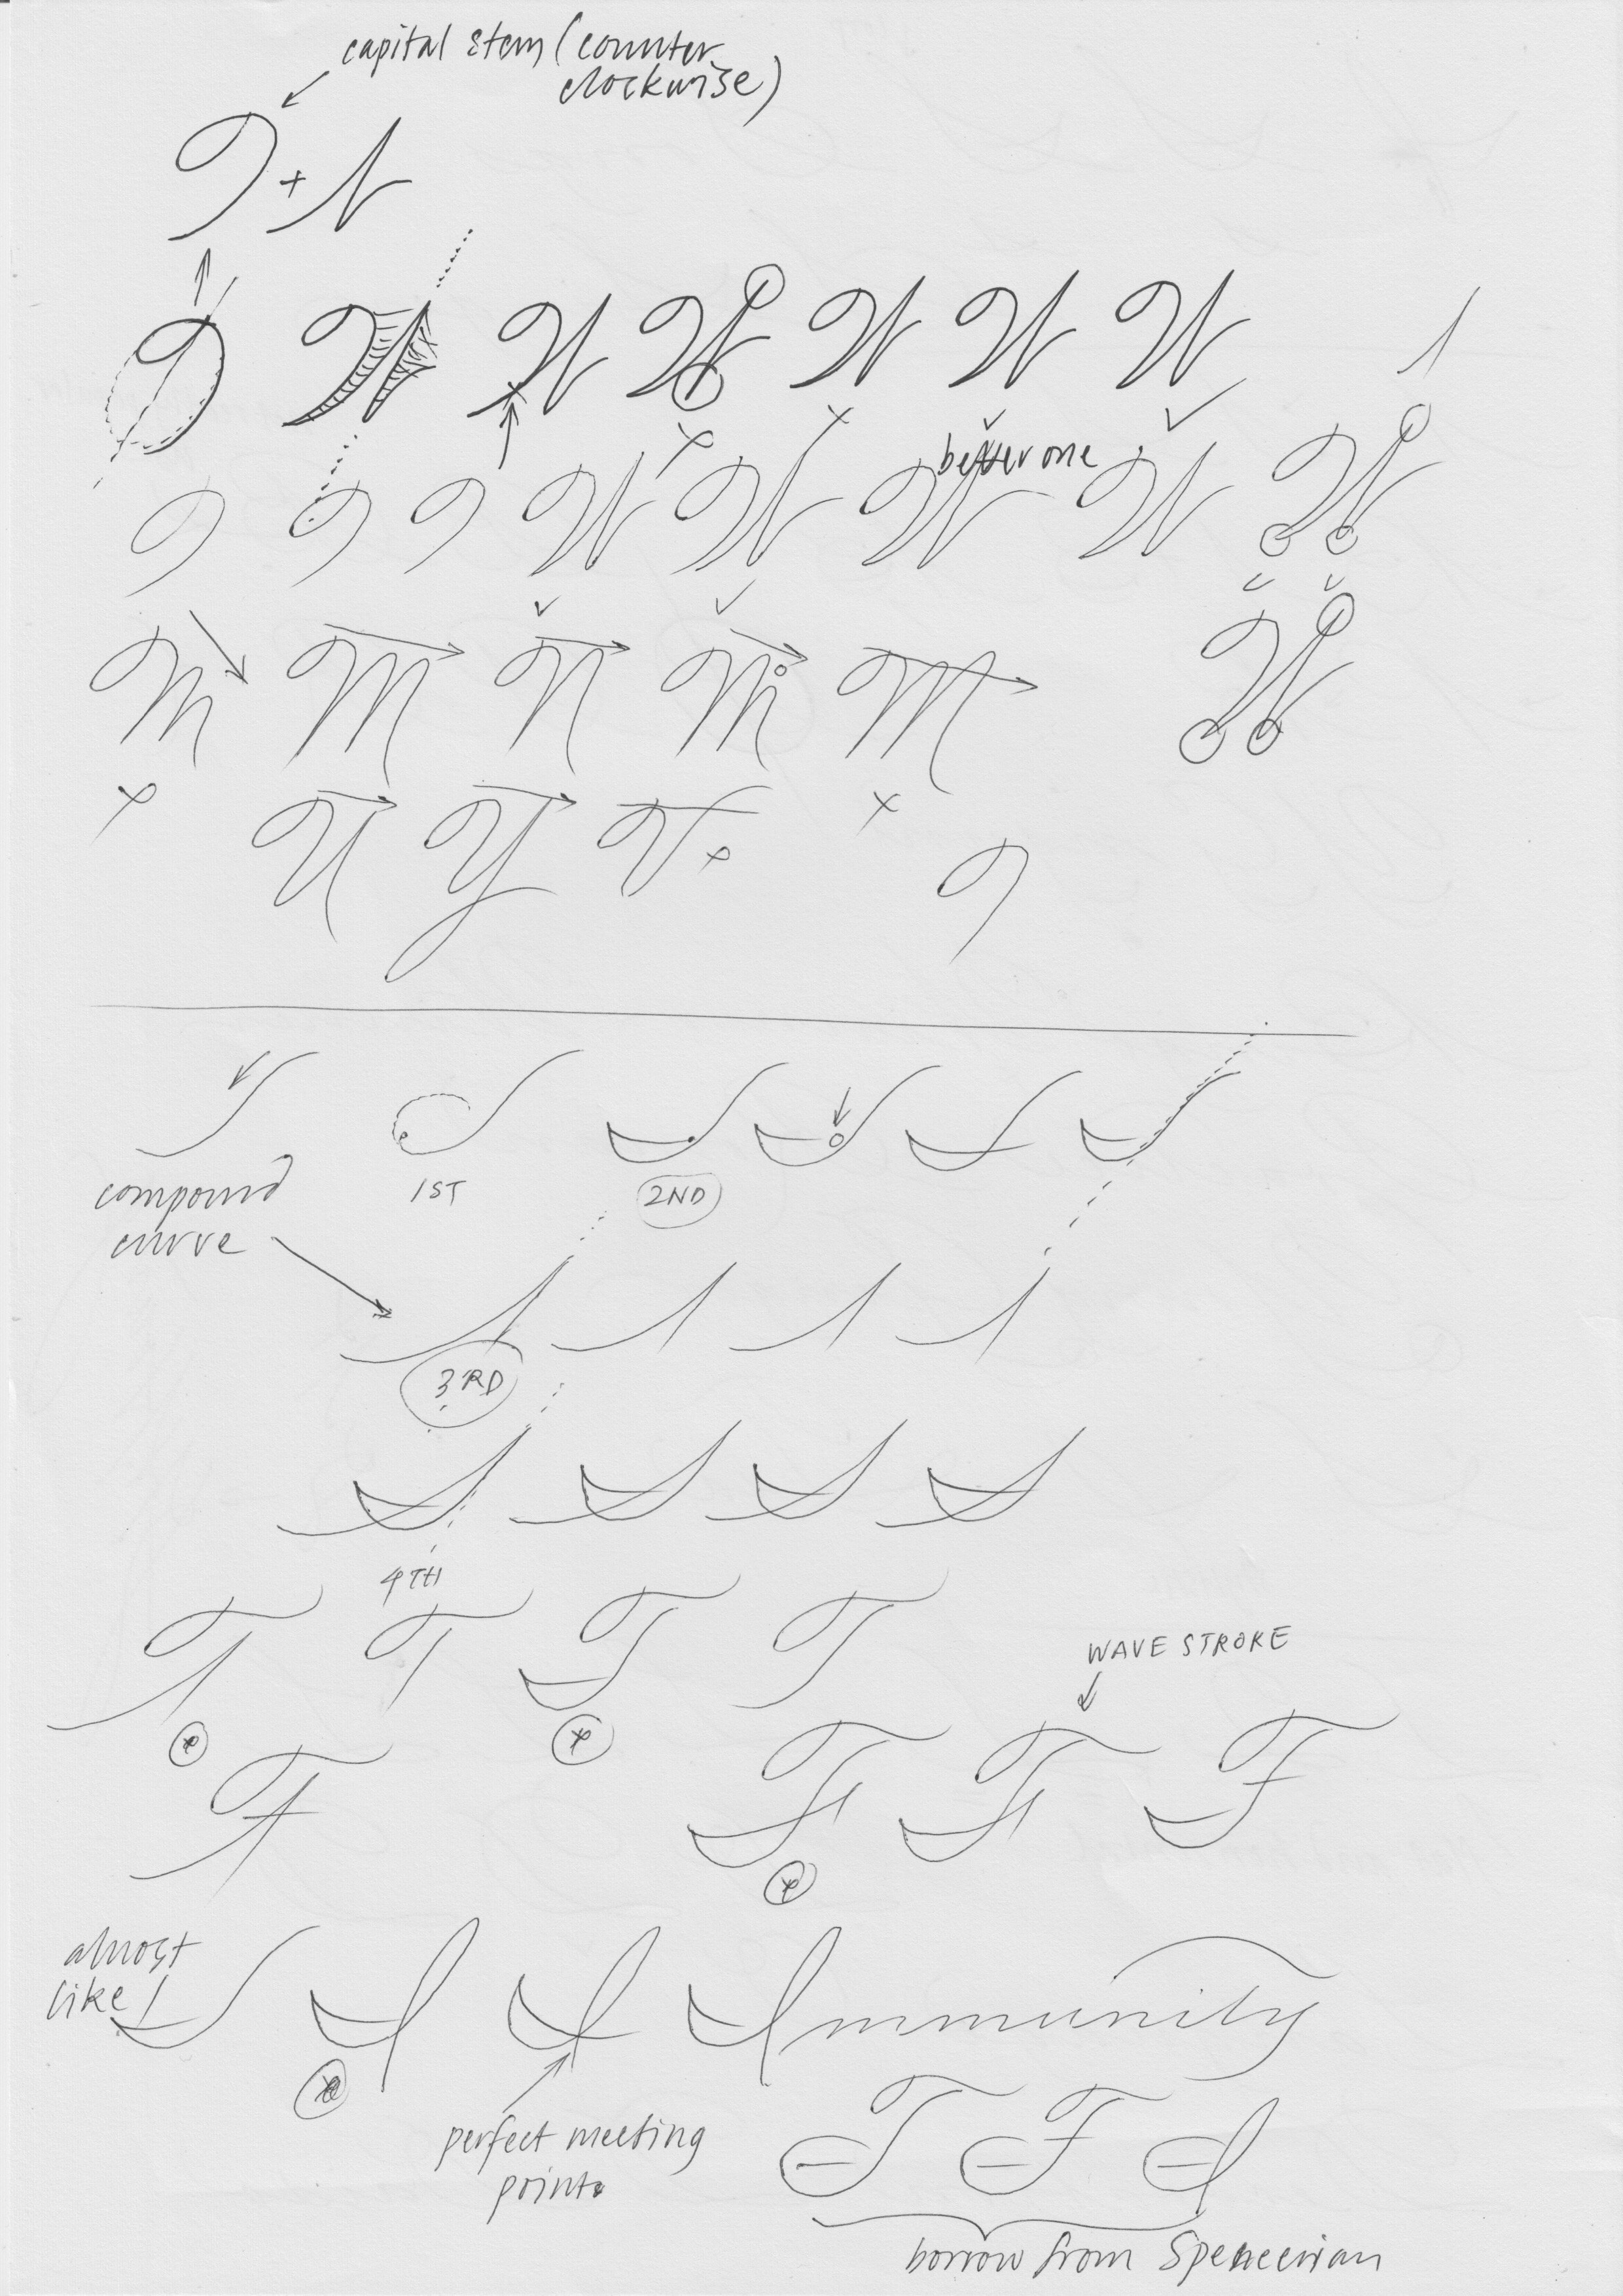 capital stem (counter
clockwise)
+ N
W W W W W W
better one
n n n W W W W W
m m n m m W
U Y V
n
1ST
2ND
compound
curve
3RD
4TH
T T T T
WAVE STROKE
F F F F
almost
like
I I Immunity
perfect meeting
point.
T F I
borrow from Spencerian